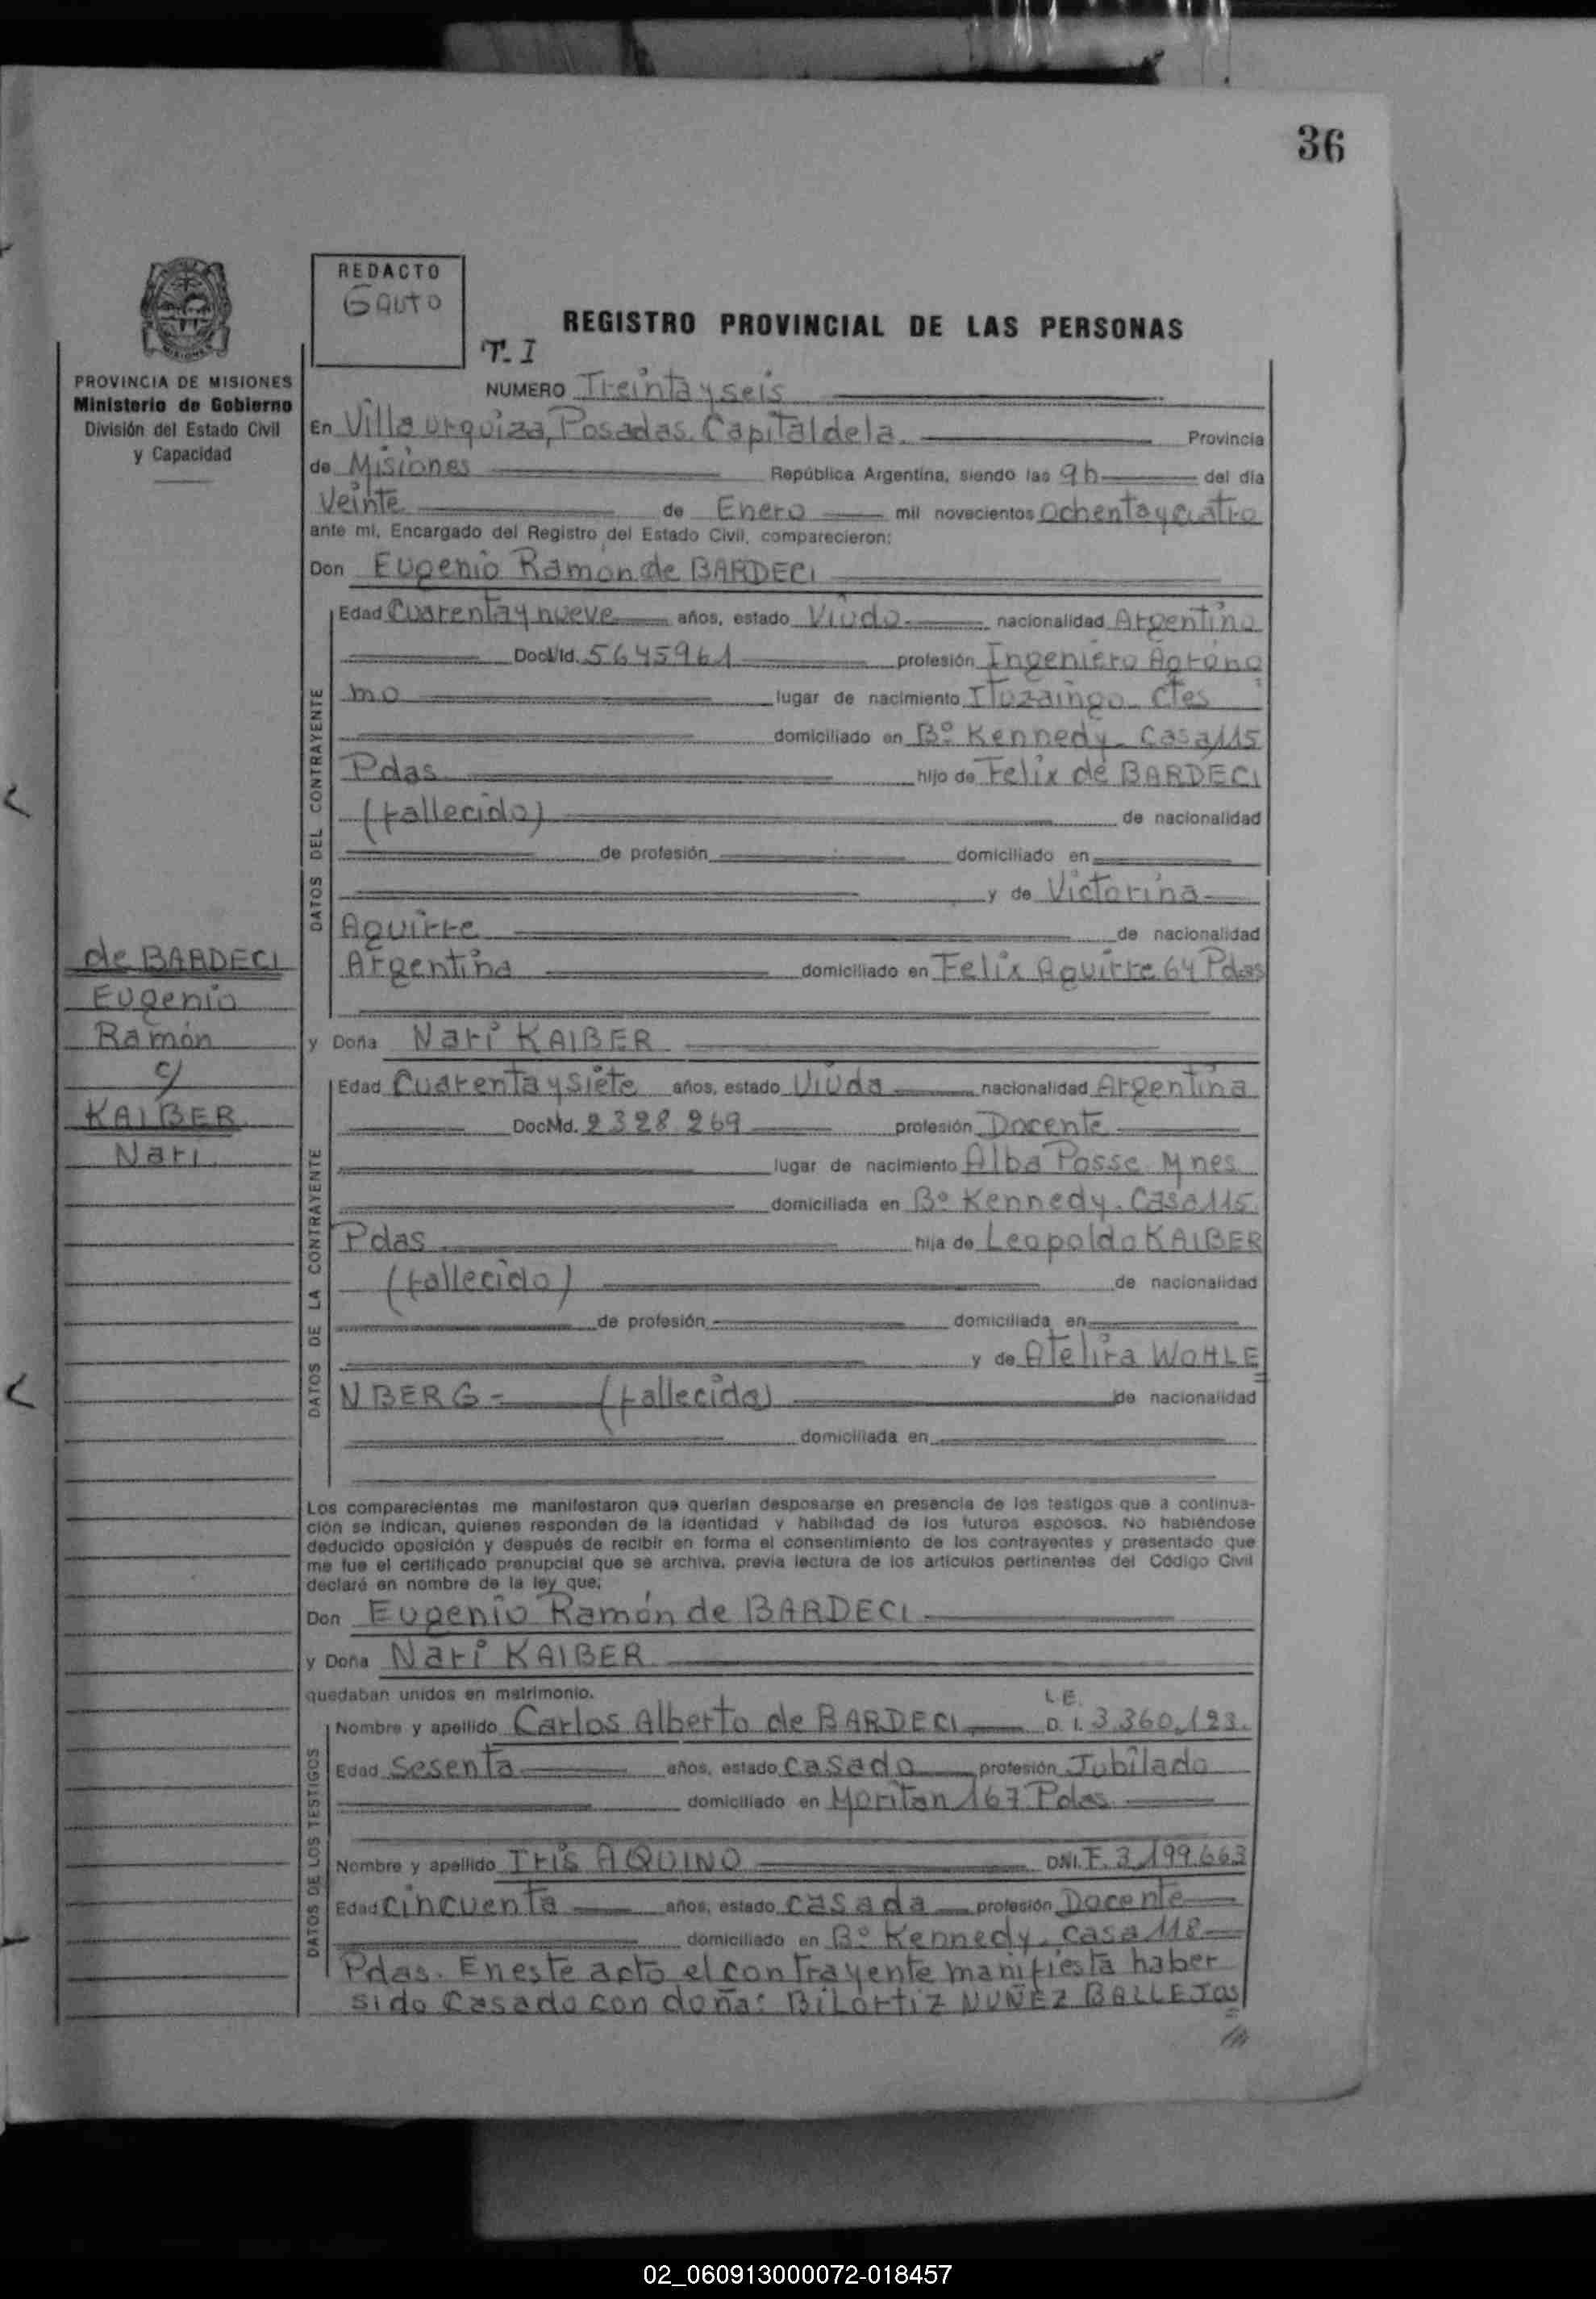 36
REDACTO
Gauto
REGISTRO PROVINCIAL DE LAS PERSONAS
T. I
PROVINCIA DE MISIONES
Ministerio de Gobierno
División del Estado Civil
y Capacidad
NUMERO Treinta y seis
En Villa Urquiza, Posadas. Capital de la Provincia
de Misiones República Argentina, siendo las 9 h del día
Veinte de Enero mil novecientos Ochenta y cuatro
ante mí, Encargado del Registro del Estado Civil, comparecieron:
Don Eugenio Ramon de BARDECI
DATOS DEL CONTRAYENTE
Edad Cuarenta y nueve años, estado Viudo nacionalidad Argentina
Doc. Id. 5645961 profesión Ingeniero Agróno
mo lugar de nacimiento Ituzaingo - Ctes
domiciliado en Bº Kennedy - Casa 115
Pdas hijo de Felix de BARDECI
(fallecido) de nacionalidad
de profesión domiciliado en
y de Victorina
Aguirre de nacionalidad
Argentina domiciliado en Felix Aguirre 64 Pdas
de BARDECI
Eugenio
Ramón
c/
KAIBER
Nari
y Doña Nari KAIBER
DATOS DE LA CONTRAYENTE
Edad Cuarenta y siete años, estado Viuda nacionalidad Argentina
Doc. Id. 2328.269 profesión Docente
lugar de nacimiento Alba Posse Mnes
domiciliada en Bº Kennedy. Casa 115
Pdas hija de Leopoldo KAIBER
(fallecido) de nacionalidad
de profesión domiciliada en
y de Atelira WOHLE
NBERG - (fallecida) de nacionalidad
domiciliada en
Los comparecientes me manifestaron que querían desposarse en presencia de los testigos que a continua-
ción se indican, quienes responden de la identidad y habilidad de los futuros esposos. No habiéndose
deducido oposición y después de recibir en forma el consentimiento de los contrayentes y presentado que
me fue el certificado prenupcial que se archiva, previa lectura de los artículos pertinentes del Código Civil
declaré en nombre de la ley que:
Don Eugenio Ramón de BARDECI
y Doña Nari KAIBER
quedaban unidos en matrimonio.
DATOS DE LOS TESTIGOS
L.E.
Nombre y apellido Carlos Alberto de BARDECI D. I. 3.360.123.
Edad Sesenta años, estado Casado profesión Jubilado
domiciliado en Moritan 167 Pdas
Nombre y apellido Iris AQUINO DNI. F. 3.199.663
Edad cincuenta años, estado casada profesión Docente
domiciliado en Bº Kennedy. Casa 118
Pdas. En este acto el contrayente manifiesta haber
sido Casado con doña: Bilortiz NUÑEZ BALLEJOS
02_060913000072-018457